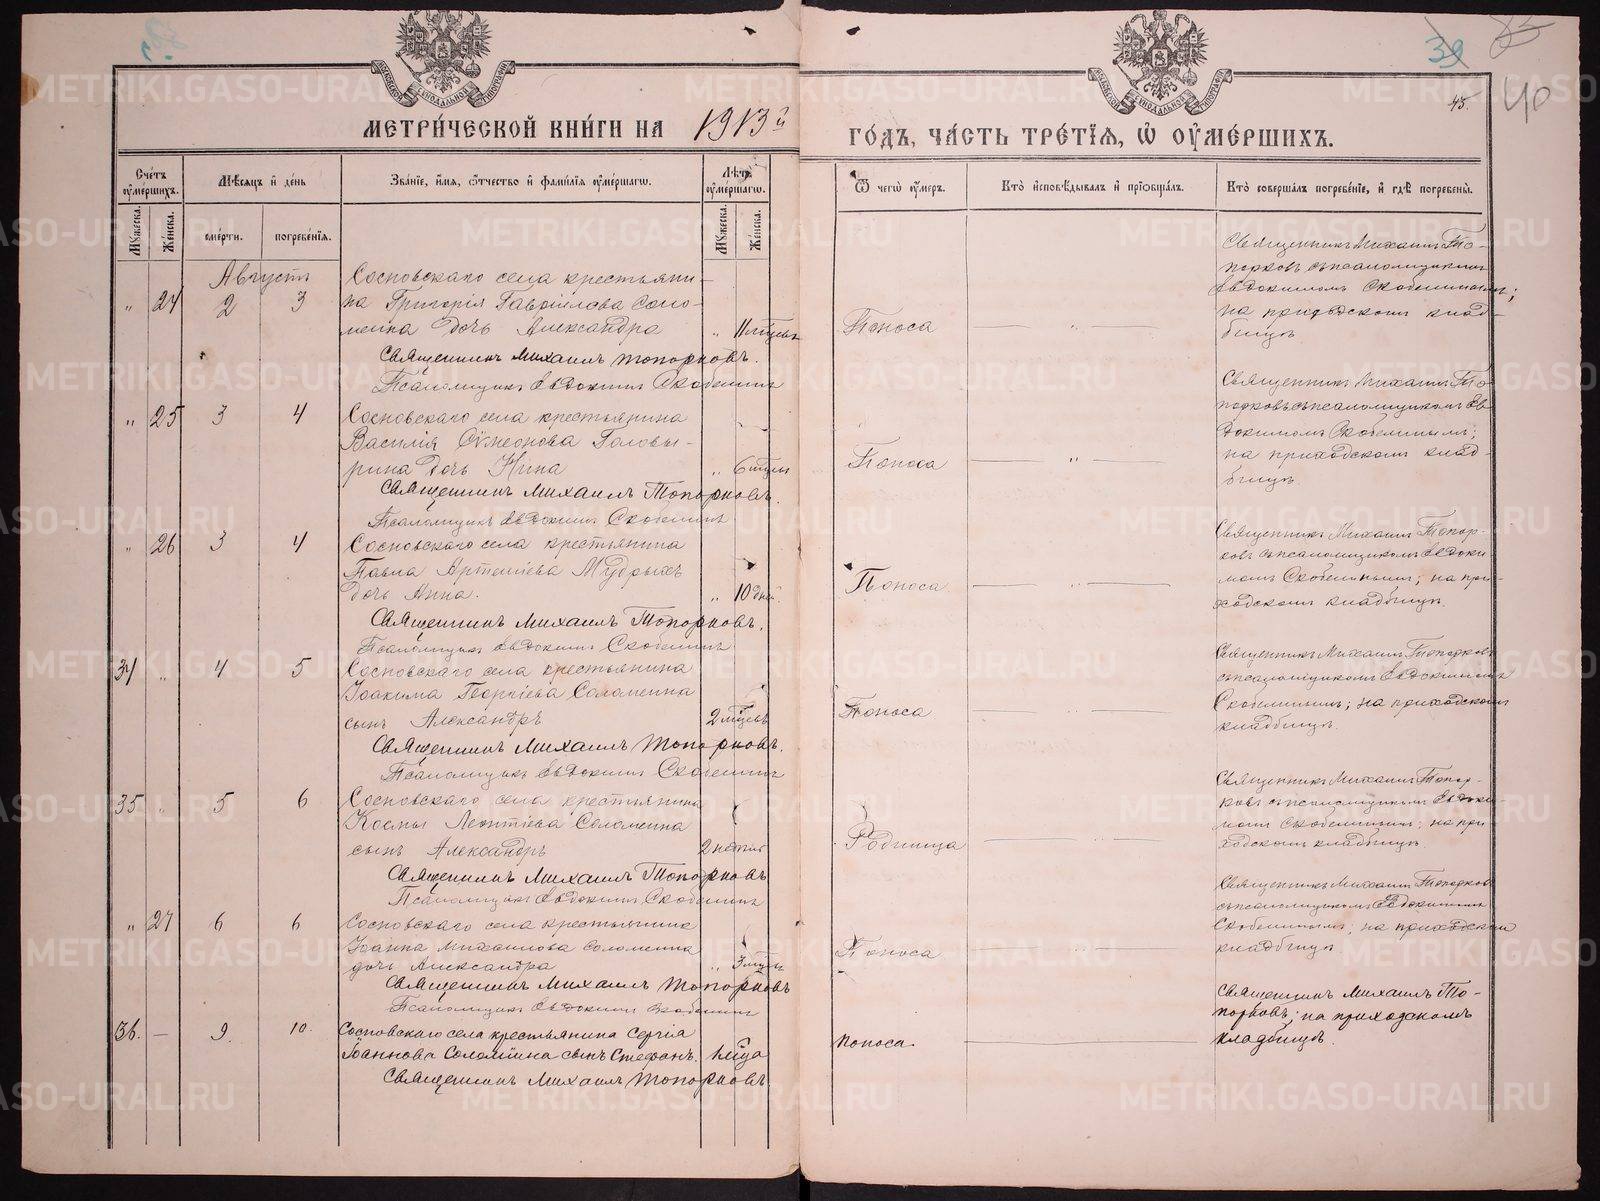 39
45.
40
МЕТРИЧЕСКОЙ КНИГИ НА 1913й
ГОДЪ, ЧАСТЬ ТРЕТІЯ, Ѡ ОУМЕРШИХЪ.
Счетъ оумершихъ.
Мѣсяцъ и день
Званіе, имя, отчество и фамилія оумершаго.
Лѣта оумершаго.
Ѿ чего оумеръ.
Кто исповѣдывалъ и пріобщалъ.
Кто совершалъ погребеніе, и гдѣ погребены.
Мужеска.
Женска.
смерти.
погребенія.
Мужеска.
Женска.
Августъ
„ 24 2 3
Сосновскаго села крестьяни-
на Григорія Гавріилова Соло-
меина дочь Александра „ 11 мѣсцевъ
Священникъ Михаилъ Топорковъ.
Псаломщикъ Евдокимъ Скобелинъ
Поноса
Священникъ Михаилъ То-
порковъ съ псаломщикомъ
Евдокимомъ Скобелинымъ;
на приходскомъ клад-
бищѣ
„ 25 3 4
Сосновскаго села крестьянина
Василія Сѵмеонова Головы-
рина дочь Нина „ 6 мѣсцевъ
Священникъ Михаилъ Топорковъ.
Псаломщикъ Евдокимъ Скобелинъ
Поноса
Священникъ Михаилъ То-
порковъ съ псаломщикомъ Ев-
докимомъ Скобелинымъ;
на приходскомъ клад-
бищѣ
„ 26 3 4
Сосновскаго села крестьянина
Павла Артеміева Мудрыхъ
дочь Анна. „ 10 дней.
Священникъ Михаилъ Топорковъ.
Псаломщикъ Евдокимъ Скобелинъ
Поноса
Священникъ Михаилъ Топор-
ковъ съ псаломщикомъ Евдоки-
момъ Скобелинымъ; на при-
ходскомъ кладбищѣ.
34 „ 4 5
Сосновскаго села крестьянина
Іоакима Георгіева Соломеина
сынъ Александръ 2 мѣсцевъ
Священникъ Михаилъ Топорковъ.
Псаломщикъ Евдокимъ Скобелинъ
Поноса
Священникъ Михаилъ Топорковъ
съ псаломщикомъ Евдокимомъ
Скобелинымъ; на приходскомъ
кладбищѣ.
35 „ 5 6
Сосновскаго села крестьянина
Космы Леонтіева Соломеина
сынъ Александръ 2 недѣли
Священникъ Михаилъ Топорковъ
Псаломщикъ Евдокимъ Скобелинъ
Родимца
Священникъ Михаилъ Топор-
ковъ съ псаломщикомъ Евдоки-
момъ Скобелинымъ; на при-
ходскомъ кладбищѣ.
„ 27 6 6
Сосновскаго села крестьянина
Іоанна Михаилова Соломеина
дочь Александра „ 3 мѣсцевъ
Священникъ Михаилъ Топорковъ
Псаломщикъ Евдокимъ Скобелинъ
Поноса
Священникъ Михаилъ Топорковъ
съ псаломщикомъ Евдокимомъ
Скобелинымъ, на приходскомъ
кладбищѣ
36. — 9. 10.
Сосновскаго села крестьянина Сергія
Іоаннова Соломеина сынъ Стефанъ. 1 мѣсца
Священникъ Михаилъ Топорковъ
поноса.
Священникъ Михаилъ То-
порковъ; на приходскомъ
кладбищѣ.
METRIKI.GASO-URAL.RU